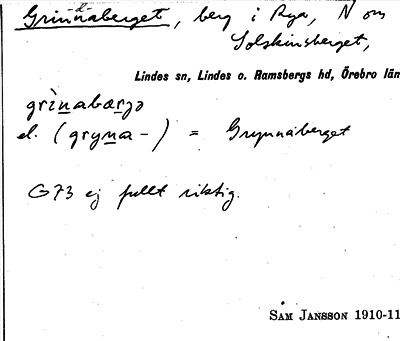 Grinnaberget, berg i Rya, N om
Solskinsberget,
Lindes sn, Lindes o. Ramsbergs hd, Örebro län
grìnabærjə
el. (gryna-) = Grynnaberget
G73 ej fullt riktig.
Sam Jansson 1910-11